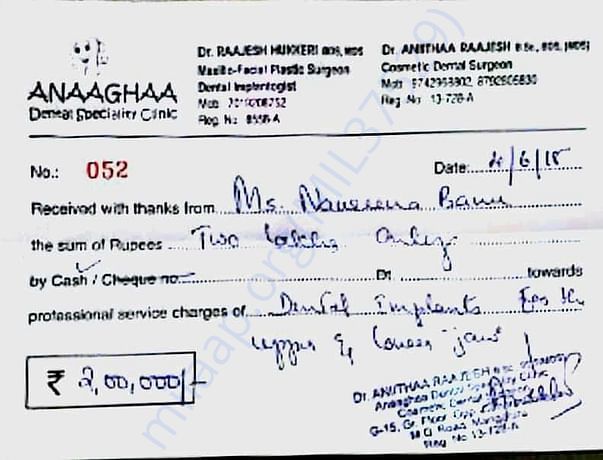 ANAAGHAA
Dental Speciality Clinic
Dr. RAAJESH HUKKERI BDS, MDS
Maxillo-Facial Plastic Surgeon
Dental Implantologist
Mob:
Reg. No: 8558-A
Dr. ANITHAA RAAJESH B.Sc., BDS, (MDS)
Cosmetic Dental Surgeon
Mob:
Reg. No: 13-728-A
No.: 052
Date: 4/6/18
Received with thanks from Ms. Banu
the sum of Rupees Two lakhs Only
by Cash / Cheque no. Dt towards
professional service charges of Dental Implants For
upper & lower "jaw"
₹ 2,00,000/-
Dr. ANITHAA RAAJESH
Anaaghaa Dental Speciality Clinic
Cosmetic Dental
G-15, Gr. Floor,
M G Road,
Reg No 13-728-A